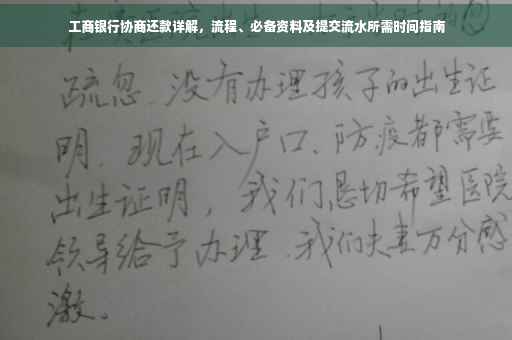 工商银行协商还款详解，流程、必备资料及提交流水所需时间指南
疏忽、没有办理孩子的出生证
明、现在入户口、防疫都需要
出生证明，我们恳切希望医院
领导给予办理、我们夫妻万分感
激。